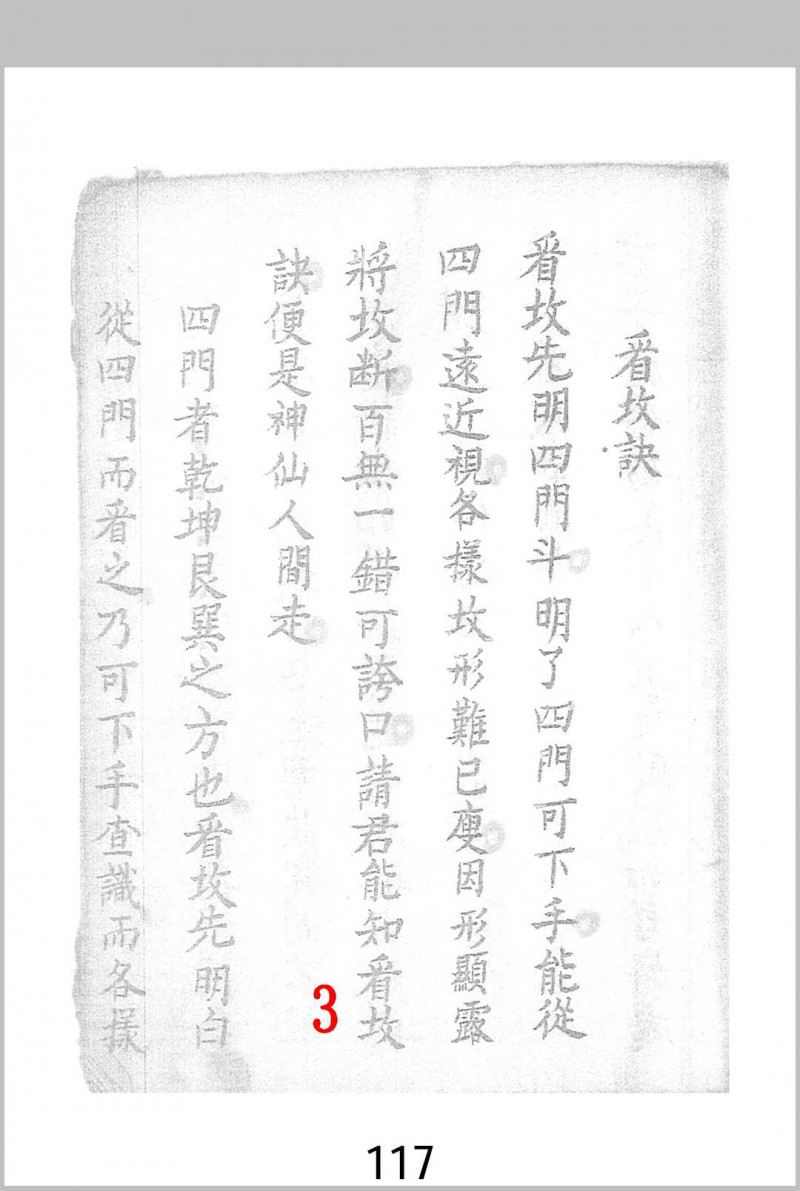 看坟訣
看坟先明四門斗明了四門可下手能從
四門遠近視各樣坟形難已廋因形顯露
將坟断百無一錯可誇口請君能知看坟
訣便是神仙人間走
四門者乾坤艮巽之方也看坟先明白
從四門而看之乃可下手查識而各樣
3
117